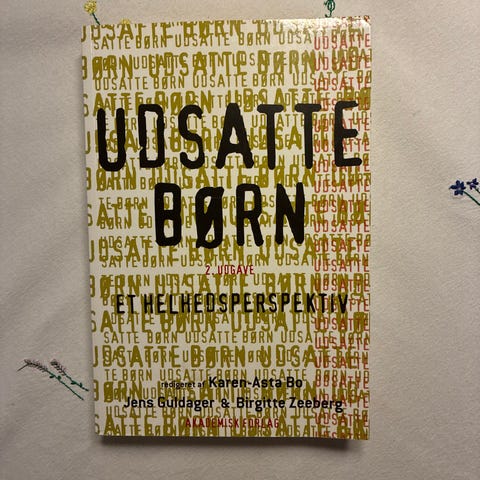 UDSATTE
BØRN
2. UDGAVE
ET HELHEDSPERSPEKTIV
redigeret af Karen-Asta Bo
Jens Guldager & Birgitte Zeeberg
AKADEMISK FORLAG